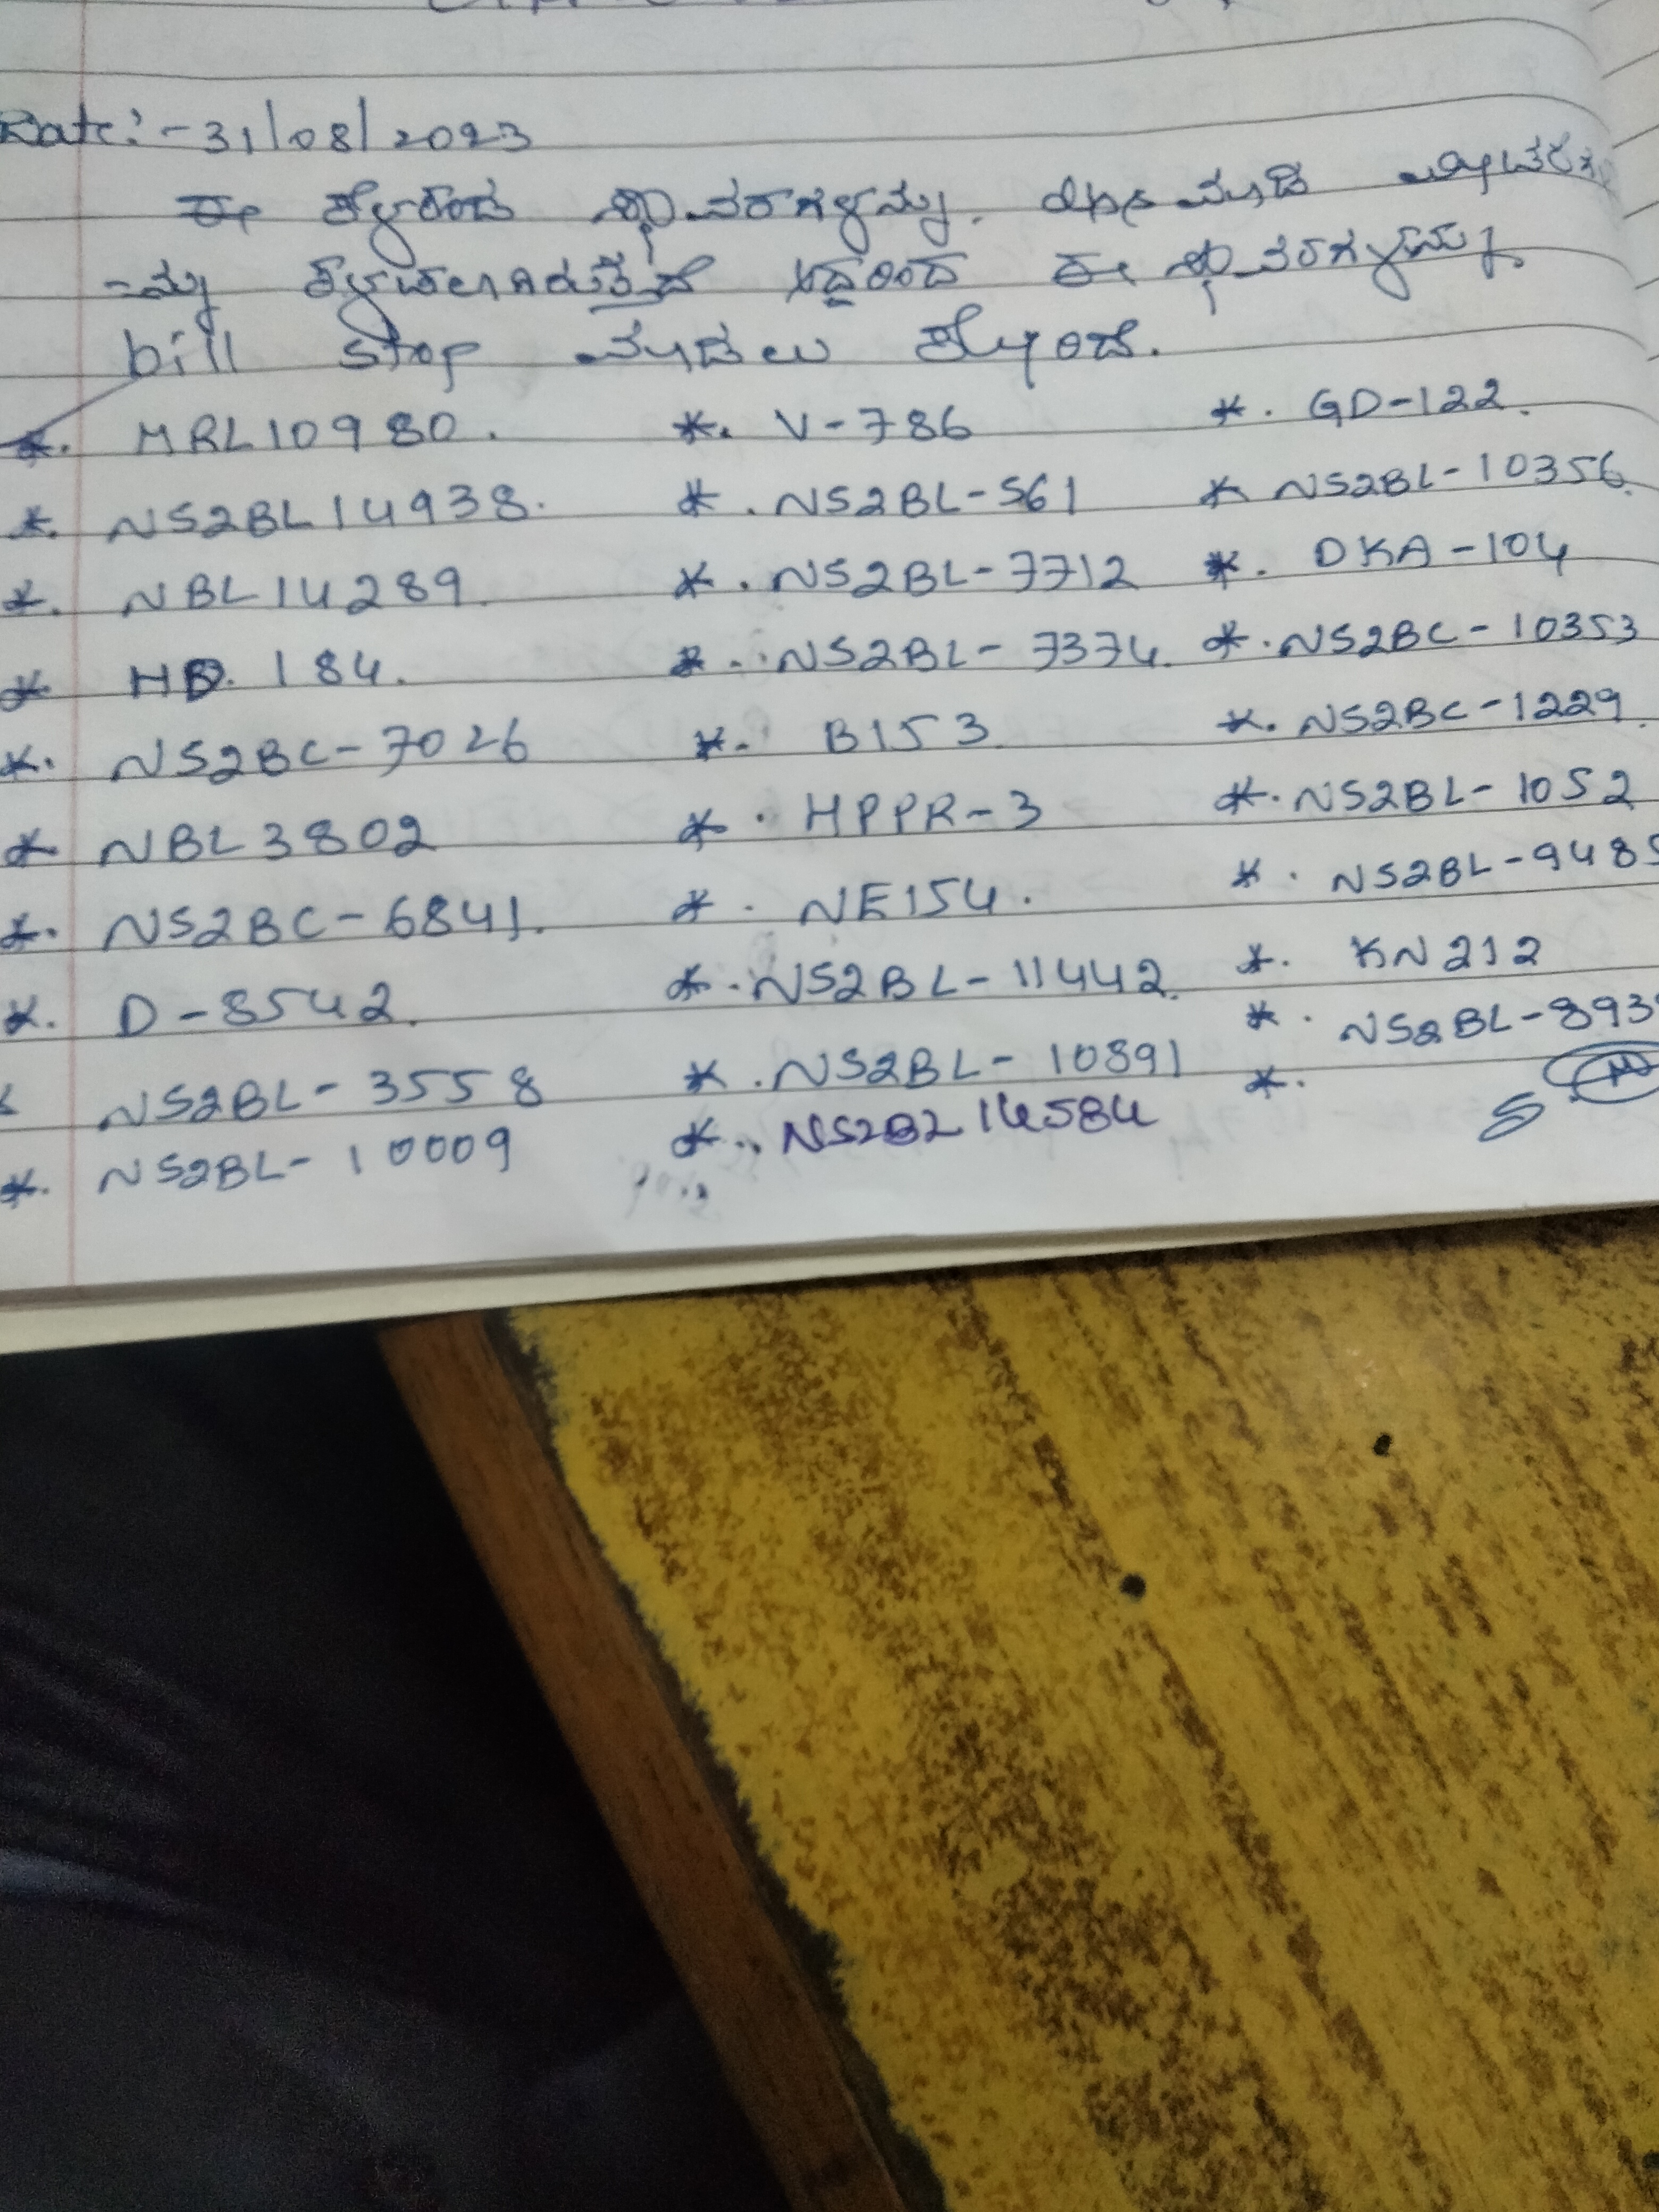 Date:-31/08/2023
ಈ ಕೆಳಕಂಡ ಸ್ಥಾವರಗಳನ್ನು ಮಾಡಿ
-ನ್ನು ಕಳಚಲಾಗಿರುತ್ತದೆ ಆದ್ದರಿಂದ ಈ ಸ್ಥಾವರಗಳನ್ನು
bill stop ಮಾಡಲು ಕೋರಿದೆ.
*. MRL10980. *. V-786 *. GD-122.
*. NS2BL14938. *. NS2BL-561 * NS2BL-10356.
*. NBL14289. *. NS2BL-7712 *. DKA-104
* HD. 184. *. NS2BL-7374. *. NS2BC-10353
*. NS2BC-7026 *. B153. *. NS2BC-1229.
* NBL3802 *. HPPR-3 *. NS2BL-1052
*. NS2BC-6841. *. NE154. *. NS2BL-9485
*. D-8542. *. NS2BL-11442. *. KN212
* NS2BL-3558 *. NS2BL-10891 *. NS2BL-893
*. NS2BL-10009 *. NS2BL14584 *.